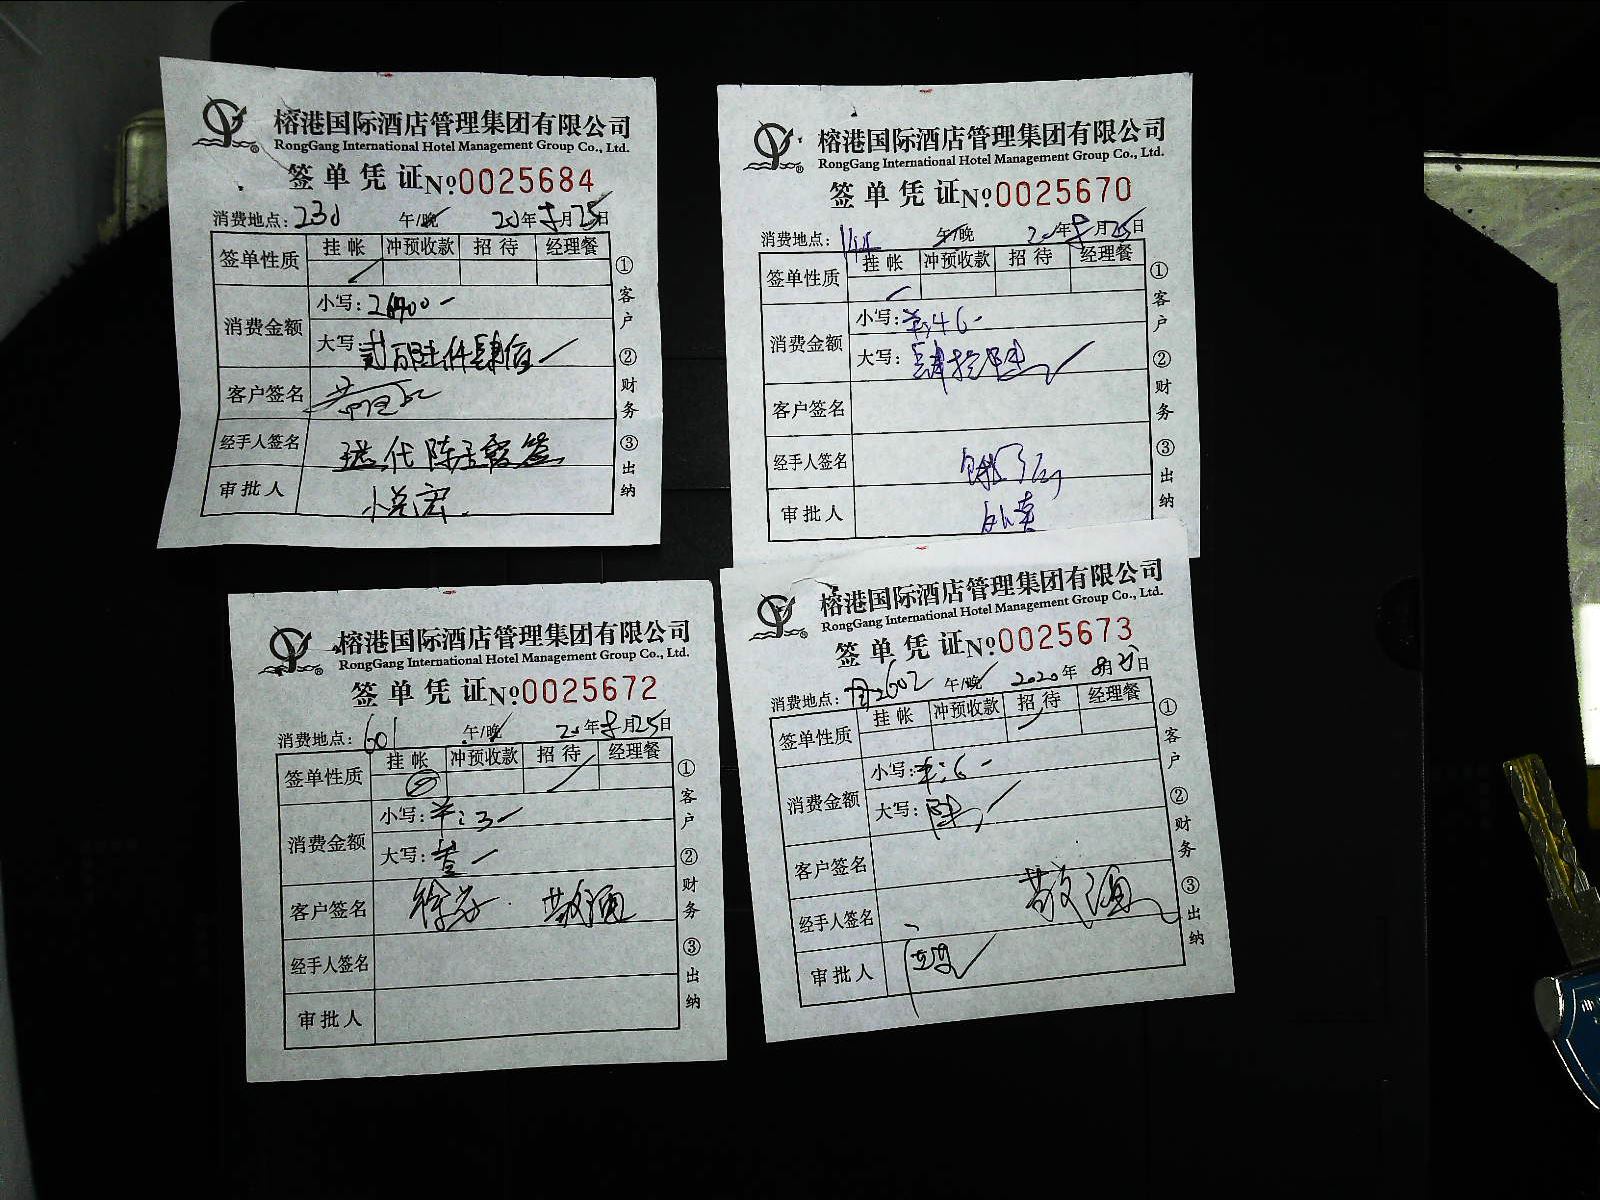 榕港国际酒店管理集团有限公司
RongGang International Hotel Management Group Co., Ltd.
签单凭证 No 0025684
消费地点: 230 午/晚 20年8月25日
签单性质 挂帐 冲预收款 招待 经理餐
消费金额 小写: 26400-
大写 贰万陆仟肆佰
客户签名
经手人签名 代陈 签
审批人
①客户 ②财务 ③出纳
榕港国际酒店管理集团有限公司
RongGang International Hotel Management Group Co., Ltd.
签单凭证 No 0025670
消费地点: 午/晚 20年8月25日
签单性质 挂帐 冲预收款 招待 经理餐
消费金额 小写: 46-
大写: 肆拾陆
客户签名
经手人签名 饿了么
审批人 外卖
①客户 ②财务 ③出纳
榕港国际酒店管理集团有限公司
RongGang International Hotel Management Group Co., Ltd.
签单凭证 No 0025672
消费地点: 601 午/晚 20年8月25日
签单性质 挂帐 冲预收款 招待 经理餐
消费金额 小写: 3
大写: 叁
客户签名 徐
经手人签名
审批人
①客户 ②财务 ③出纳
榕港国际酒店管理集团有限公司
RongGang International Hotel Management Group Co., Ltd.
签单凭证 No 0025673
消费地点: 602 午/晚 2020年8月25日
签单性质 挂帐 冲预收款 招待 经理餐
消费金额 小写: 6-
大写: 陆
客户签名
经手人签名
审批人
①客户 ②财务 ③出纳